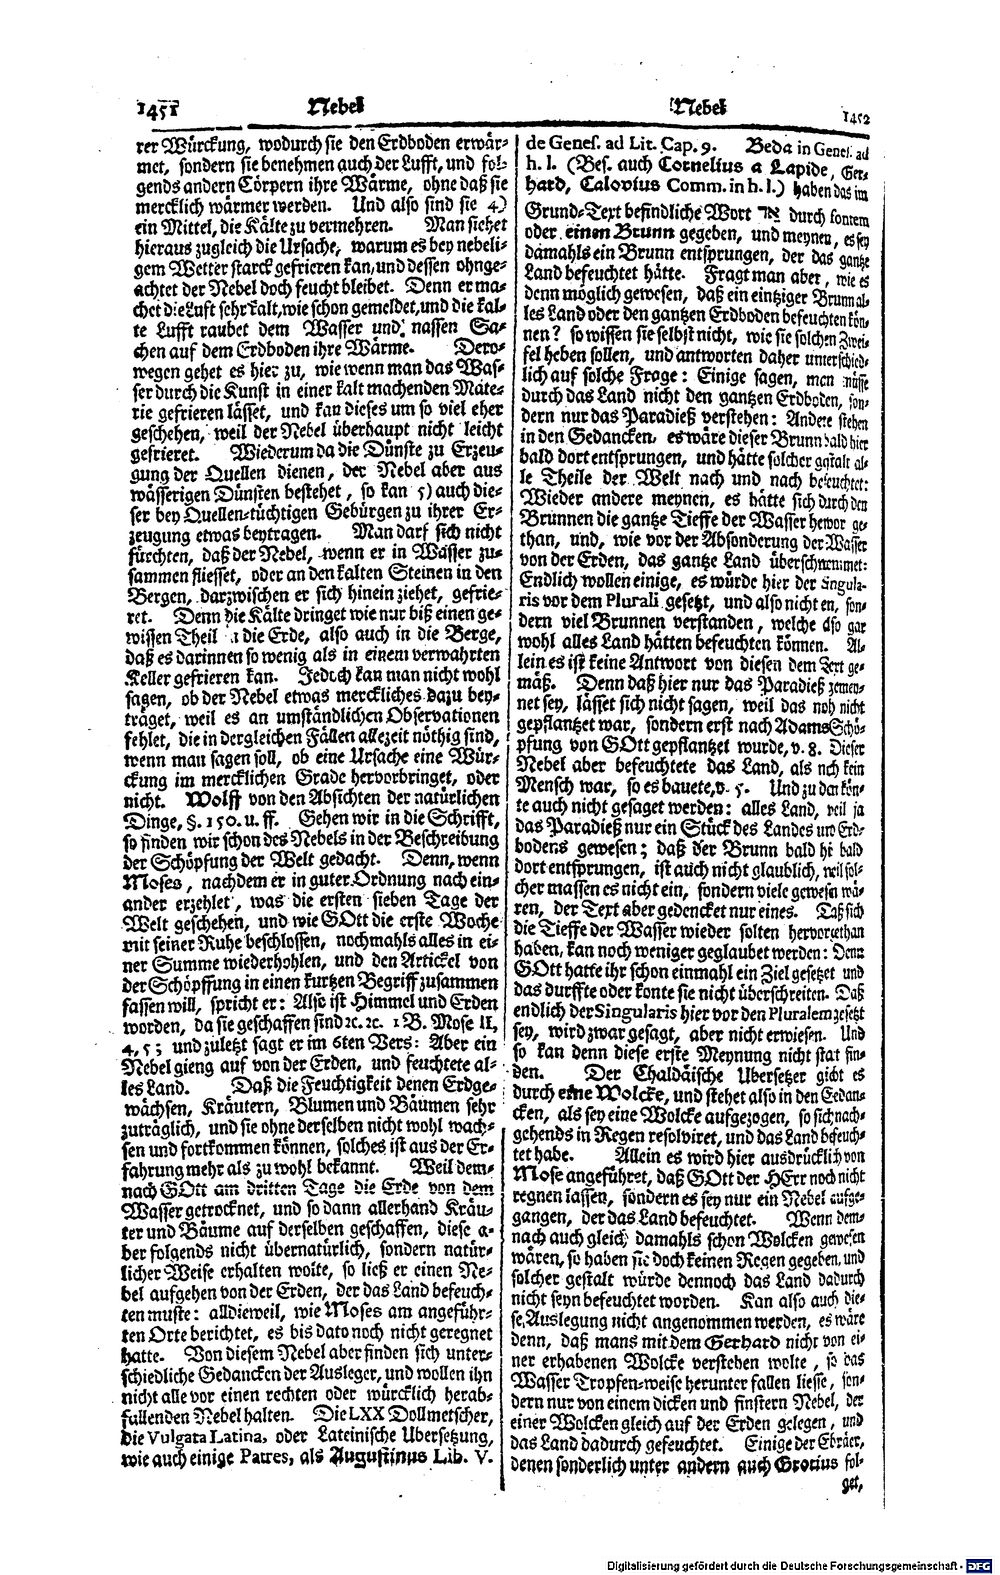 1451 Nebel
rer Würckung, wodurch sie den Erdboden erwär-
met, sondern sie benehmen auch der Lufft, und fol-
gends andern Cörpern ihre Wärme, ohne daß sie
mercklich wärmer werden. Und also sind sie 4)
ein Mittel, die Kälte zu vermehren. Man siehet
hieraus zugleich die Ursache, warum es bey nebeli-
gem Wetter starck gefrieren kan, und dessen ohnge-
achtet der Nebel doch feucht bleibet. Denn er ma-
chet die Luft sehr kalt, wie schon gemeldet, und die kal-
te Lufft raubet dem Wasser und nassen Sa-
chen auf dem Erdboden ihre Wärme. Dero-
wegen gehet es hier zu, wie wenn man das Was-
ser durch die Kunst in einer kalt machenden Mate-
rie gefrieren lässet, und kan dieses um so viel eher
geschehen, weil der Nebel überhaupt nicht leicht
gefrieret. Wiederum da die Dünste zu Erzeu-
gung der Quellen dienen, der Nebel aber aus
wässerigen Dünsten bestehet, so kan 5) auch die-
ser bey Quellen-tüchtigen Gebürgen zu ihrer Er-
zeugung etwas beytragen. Man darf sich nicht
fürchten, daß der Nebel, wenn er in Wasser zu-
sammen fliesset, oder an den kalten Steinen in den
Bergen, darzwischen er sich hinein ziehet, gefrie-
ret. Denn die Kälte dringet wie nur biß einen ge-
wissen Theil die Erde, also auch in die Berge,
daß es darinnen so wenig als in einem verwahrten
Keller gefrieren kan. Jedoch kan man nicht wohl
sagen, ob der Nebel etwas merckliches dazu bey-
träget, weil es an umständlichen Observationen
fehlet, die in dergleichen Fällen allezeit nöthig sind,
wenn man sagen soll, ob eine Ursache eine Wür-
ckung im mercklichen Grade hervorbringet, oder
nicht. Wolff von den Absichten der natürlichen
Dinge, §. 150. u. ff. Gehen wir in die Schrifft,
so finden wir schon des Nebels in der Beschreibung
der Schöpfung der Welt gedacht. Denn, wenn
Moses, nachdem er in guter Ordnung nach ein-
ander erzehlet, was die ersten sieben Tage der
Welt geschehen, und wie GOtt die erste Woche
mit seiner Ruhe beschlossen, nochmahls alles in ei-
ner Summe wiederhohlen, und den Artickel von
der Schöpffung in einen kurtzen Begriff zusammen
fassen will, spricht er: Also ist Himmel und Erden
worden, da sie geschaffen sind ꝛc. ꝛc. 1 B. Mose II,
4, 5; und zuletzt sagt er im 6ten Vers: Aber ein
Nebel gieng auf von der Erden, und feuchtete al-
les Land. Daß die Feuchtigkeit denen Erdge-
wächsen, Kräutern, Blumen und Bäumen sehr
zuträglich, und sie ohne derselben nicht wohl wach-
sen und fortkommen können, solches ist aus der Er-
fahrung mehr als zu wohl bekannt. Weil dem-
nach GOtt am dritten Tage die Erde von dem
Wasser getrocknet, und so dann allerhand Kräu-
ter und Bäume auf derselben geschaffen, diese a-
ber folgends nicht übernatürlich, sondern natür-
licher Weise erhalten wolte, so ließ er einen Ne-
bel aufgehen von der Erden, der das Land befeuch-
ten muste: alldieweil, wie Moses am angeführ-
ten Orte berichtet, es bis dato noch nicht geregnet
hatte. Von diesem Nebel aber finden sich unter-
schiedliche Gedancken der Ausleger, und wollen ihn
nicht alle vor einen rechten oder würcklich herab-
fallenden Nebel halten. Die LXX Dollmetscher,
die Vulgata Latina, oder Lateinische Ubersetzung,
wie auch einige Patres, als Augustinus Lib. V.
Nebel 1452
de Genes. ad Lit. Cap. 9. Beda in Genes. ad
h. l. (Bes. auch Cornelius a Lapide, Ger-
hard, Calovius Comm. in h. l.) haben das im
Grund-Text befindliche Wort אד durch fontem
oder einen Brunn gegeben, und meynen, es sey
damahls ein Brunn entsprungen, der das gantze
Land befeuchtet hätte. Fragt man aber, wie es
denn möglich gewesen, daß ein eintziger Brunn al-
les Land oder den gantzen Erdboden befeuchten kön-
nen? so wissen sie selbst nicht, wie sie solchen Zwei-
fel heben sollen, und antworten daher unterschied-
lich auf solche Frage: Einige sagen, man müsse
durch das Land nicht den gantzen Erdboden, son-
dern nur das Paradieß verstehen: Andere stehen
in den Gedancken, es wäre dieser Brunn bald hier
bald dort entsprungen, und hätte solcher gestalt al-
le Theile der Welt nach und nach befeuchtet:
Wieder andere meynen, es hätte sich durch den
Brunnen die gantze Tieffe der Wasser hervor ge-
than, und, wie vor der Absonderung der Wasser
von der Erden, das gantze Land überschwemmet:
Endlich wollen einige, es würde hier der Singula-
ris vor dem Plurali gesetzt, und also nicht en, son-
dern viel Brunnen verstanden, welche also gar
wohl alles Land hätten befeuchten können. Al-
lein es ist keine Antwort von diesen dem Text ge-
mäß. Denn daß hier nur das Paradieß gemey-
net sey, lässet sich nicht sagen, weil das noch nicht
gepflantzet war, sondern erst nach Adams Schö-
pfung von GOtt gepflantzet wurde, v. 8. Dieser
Nebel aber befeuchtete das Land, als noch kein
Mensch war, so es bauete, v. 5. Und zu dem kön-
te auch nicht gesaget werden: alles Land, weil ja
das Paradieß nur ein Stück des Landes und Erd-
bodens gewesen; daß der Brunn bald hi bald
dort entsprungen, ist auch nicht glaublich, weil sol-
cher massen es nicht ein, sondern viele gewesen wä-
ren, der Text aber gedencket nur eines. Daß sich
die Tieffe der Wasser wieder solten hervorgethan
haben, kan noch weniger geglaubet werden: Denn
GOtt hatte ihr schon einmahl ein Ziel gesetzet und
das durffte oder konte sie nicht überschreiten. Daß
endlich der Singularis hier vor den Pluralem gesetzt
sey, wird zwar gesagt, aber nicht erwiesen. Und
so kan denn diese erste Meynung nicht stat fin-
den. Der Chaldäische Ubersetzer gibt es
durch eine Wolcke, und stehet also in den Gedan-
cken, als sey eine Wolcke aufgezogen, so sich nach-
gehends in Regen resolviret, und das Land befeuch-
tet habe. Allein es wird hier ausdrücklich von
Mose angeführet, daß GOtt der HErr noch nicht
regnen lassen, sondern es sey nur ein Nebel aufge-
gangen, der das Land befeuchtet. Wenn dem-
nach auch gleich damahls schon Wolcken gewesen
wären, so haben sie doch keinen Regen gegeben, und
solcher gestalt würde dennoch das Land dadurch
nicht seyn befeuchtet worden. Kan also auch die-
se Auslegung nicht angenommen werden, es wäre
denn, daß mans mit dem Gerhard nicht von ei-
ner erhabenen Wolcke verstehen wolte, so das
Wasser Tropfen-weise herunter fallen liesse, son-
dern nur von einem dicken und finstern Nebel, der
einer Wolcken gleich auf der Erden gelegen, und
das Land dadurch gefeuchtet. Einige der Ebräer,
denen sonderlich unter andern auch Grotius fol-
get,
Digitalisierung gefördert durch die Deutsche Forschungsgemeinschaft - DFG